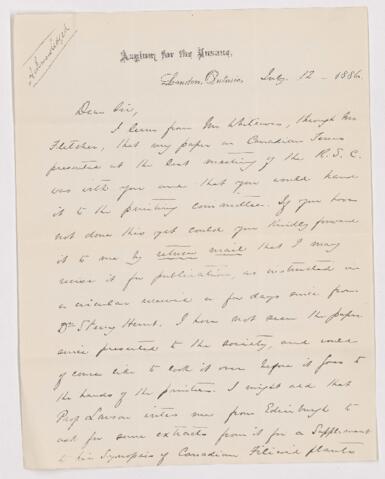 Acknowledged
Asylum for the Insane,
London, Ontario, July 12 - 1886
Dear Sir,
I learn from Mr Whiteaves, through Mr
Fletcher, that my paper on Canadian Ferns
presented at the last meeting of the R.S.C.
was with you and that you would hand
it to the printing committee. If you have
not done this yet could you kindly forward
it to me by return mail that I may
revise it for publication, as instructed in
a circular received a few days since from
Dr Sterry Hunt. I have not seen the paper
since presented to the society, and would
of course like to look it over before it goes to
the hands of the printers. I might add that
Prof Lawson writes me from Edinburgh to
ask for some extracts from it for a Supplement
to his Synopsis of Canadian Filicoid plants